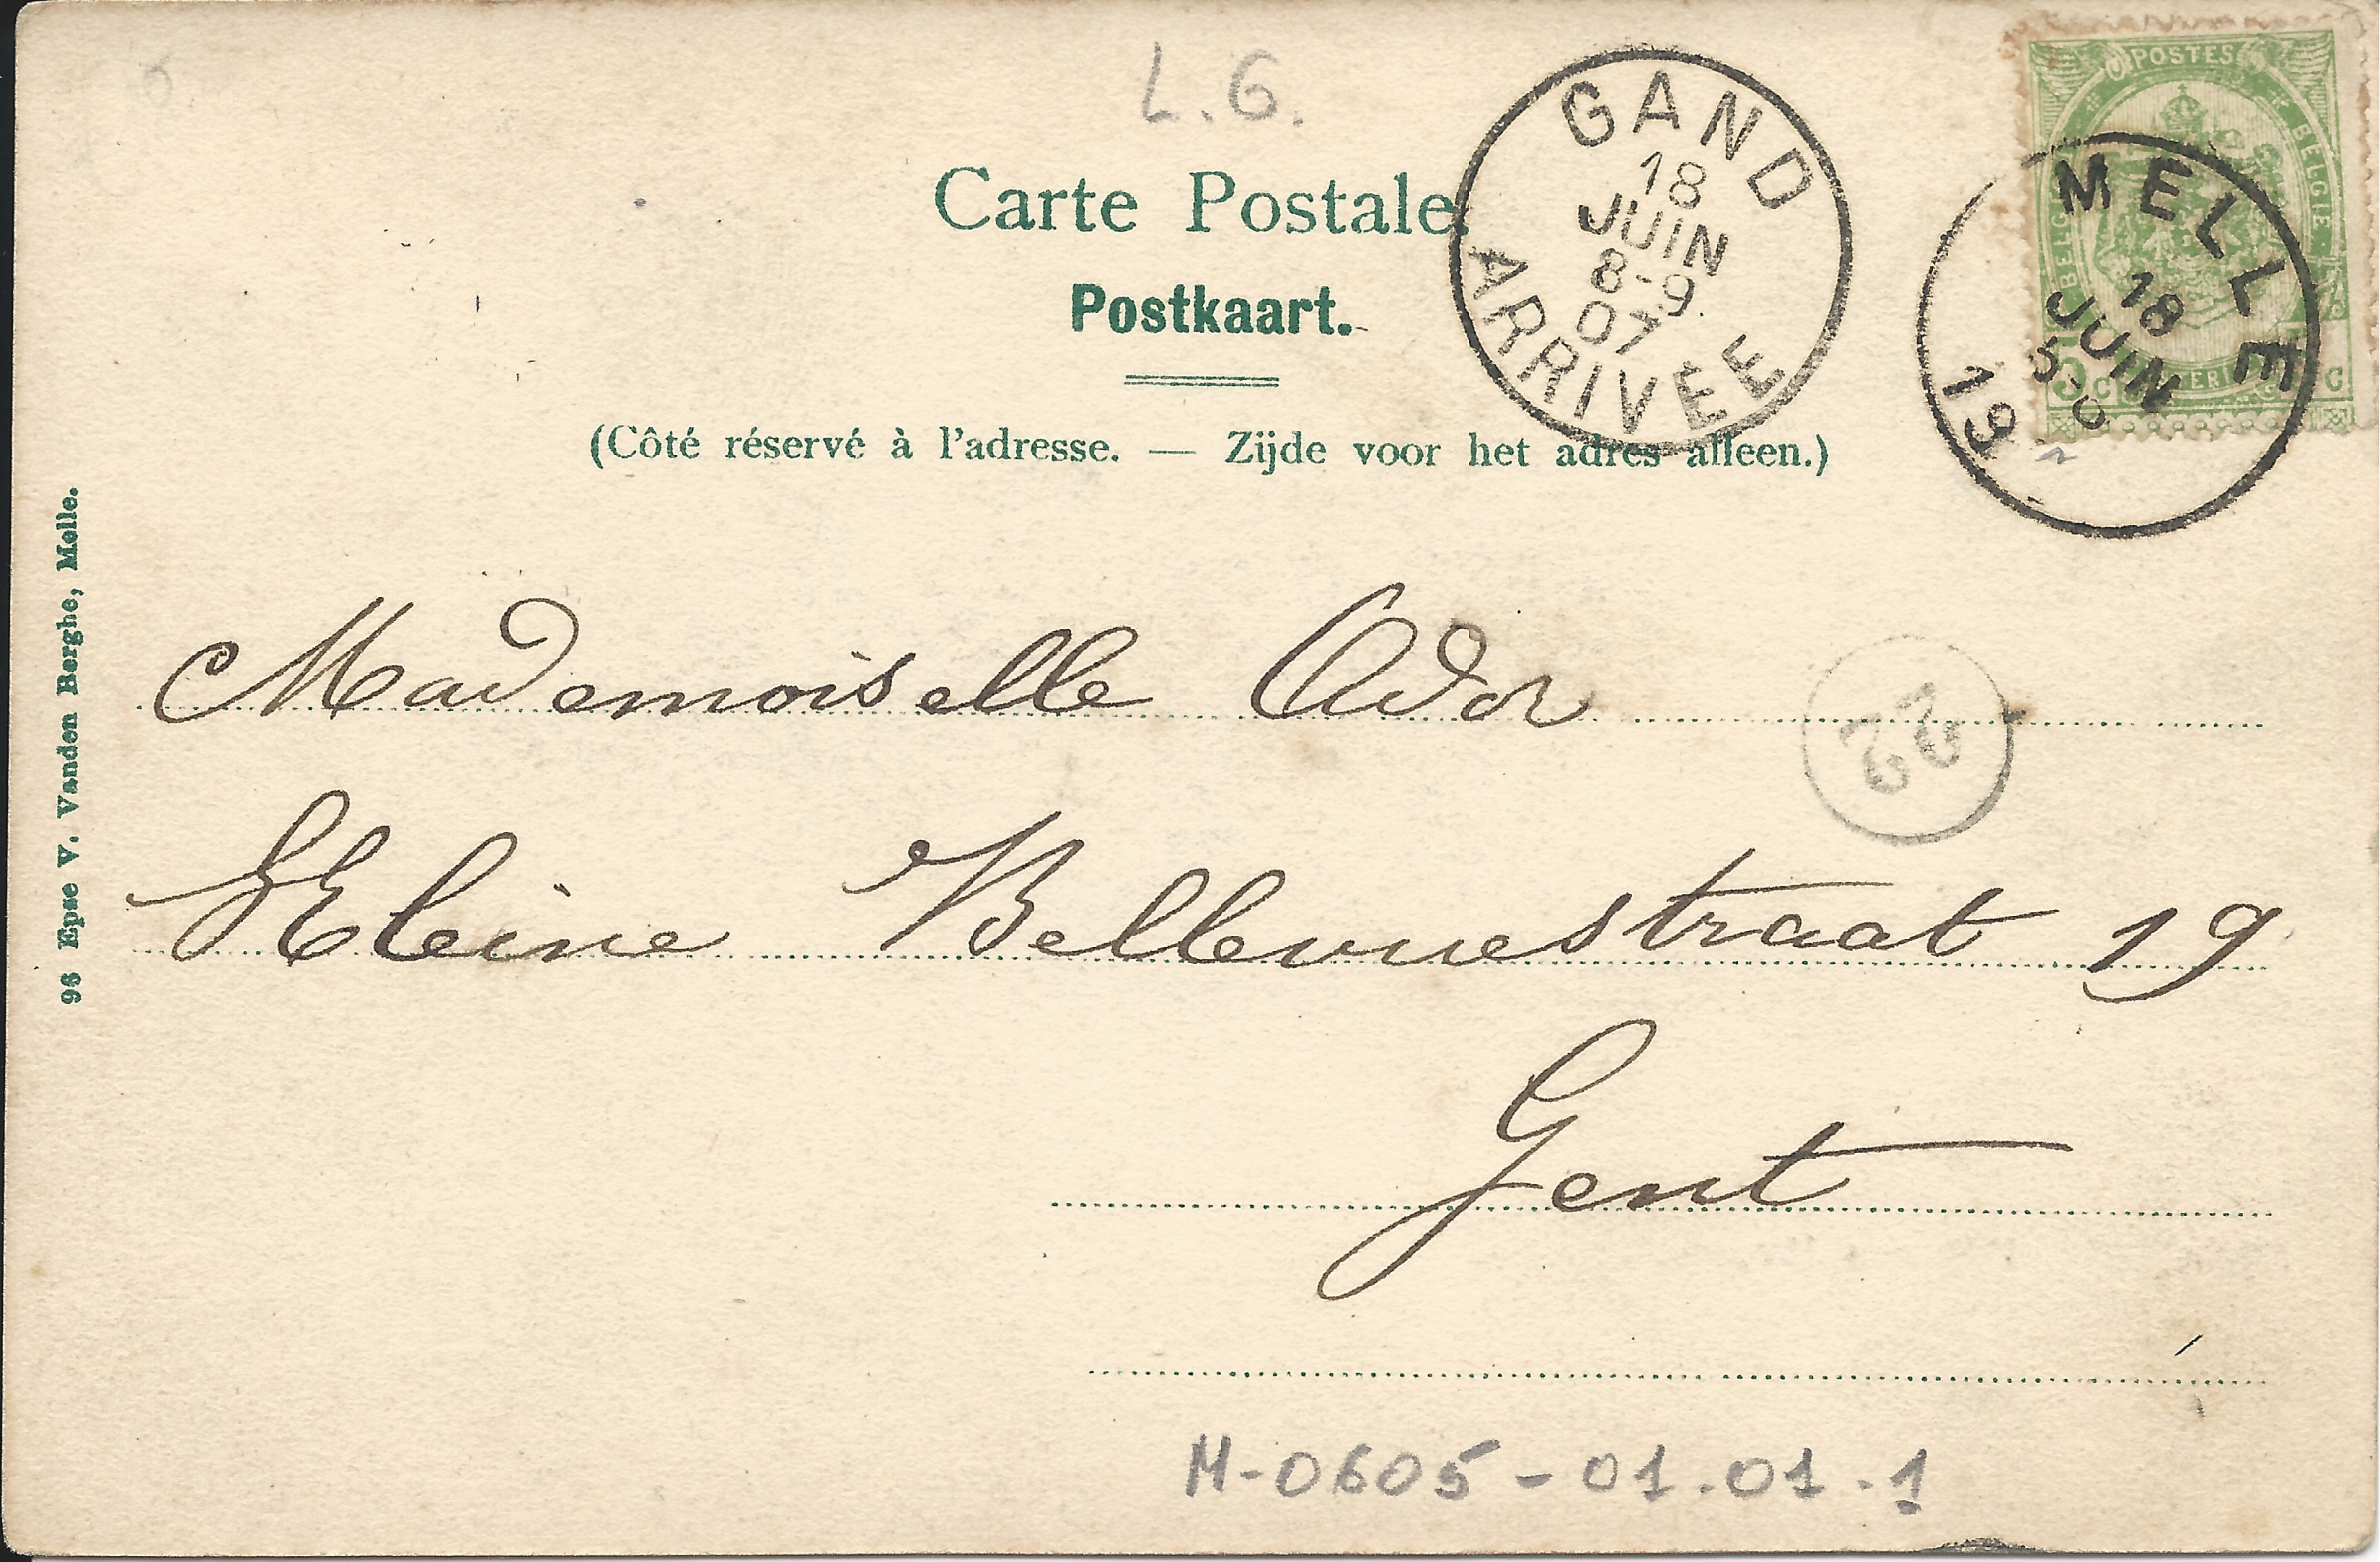 L.G.
POSTES
GAND
18
JUIN
8-9
07
ARRIVEE
MELLE
18
JUIN
19
Carte Postale.
Postkaart.
(Côté réservé à l'adresse. — Zijde voor het adres alleen.)
96 Epse V. Vanden Berghe, Melle.
Mademoiselle Ador
22
Kleine Bellevuestraat 19
Gent
M-0605-01.01.1